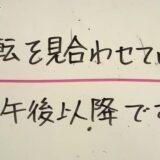 転を見合わせて
午後以降で